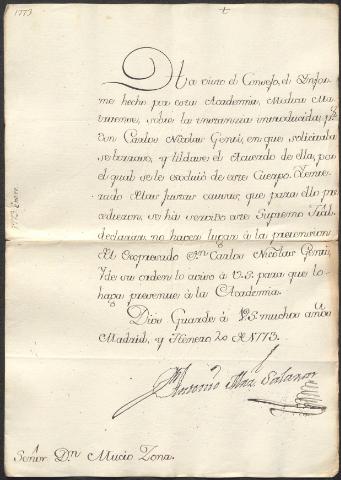 1773
Ha visto el Consejo, el Infor-
me hecho por esta Academia, Medica Ma-
tritense, sobre la instancia introducida pr
Don Carlos Nicolas Genti, en que solicitaba
se tarxase, y tildase el Acuerdo de ella, por
el qual se le excluió de este Cuerpo. Y ente-
rado de las justas causas, que para ello pre-
cedieron, se ha servido este Supremo Tribl
declarar, no haver lugar à la pretension
del Expresado Dn Carlos Nicolas Genti,
Y de su orden lo aviso à V.S. para que lo
haga presente à la Academia.
Dios Guarde à V.S. muchos años
Madrid, y Henero 20 de 1773.
Antonio Mrz Salazar
Señor Dn Mucio Zona.
1773 Enero